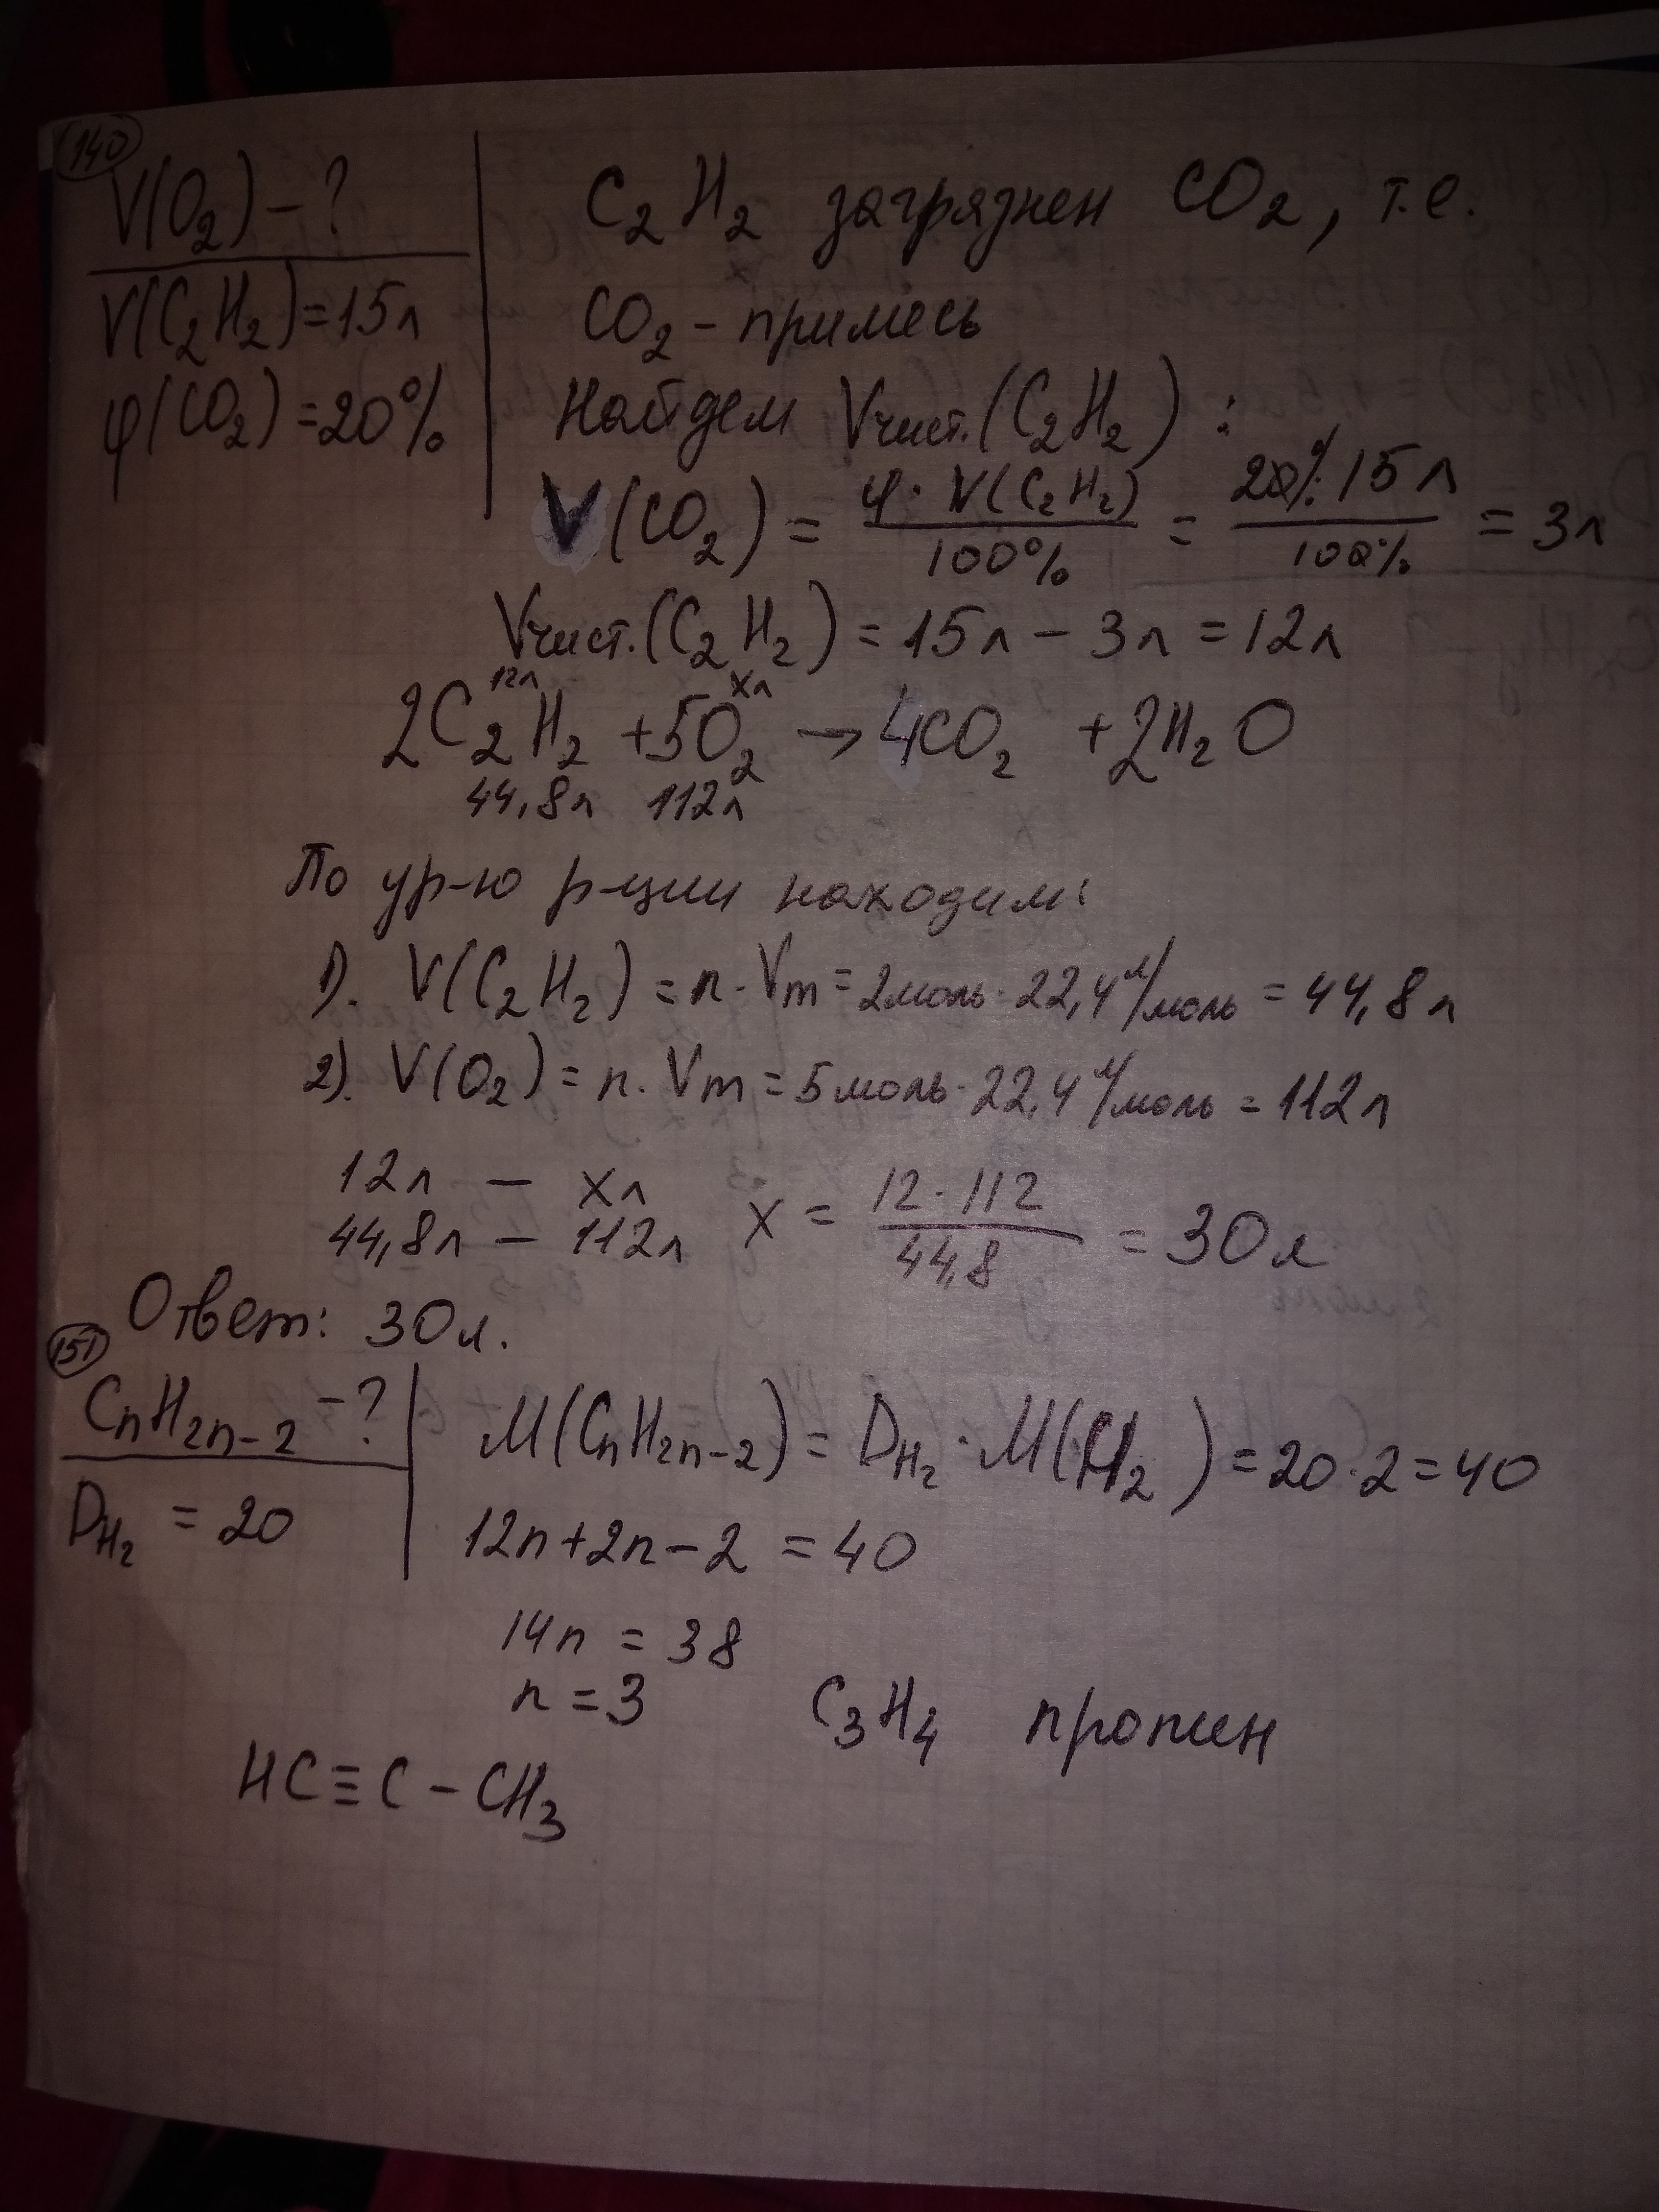 140
V(O₂) - ?
V(C₂H₂) = 15л
φ(CO₂) = 20%
C₂H₂ загрязнен CO₂, т.е.
CO₂ - примесь
Найдем Vчист.(C₂H₂):
V(CO₂) = φ · V(C₂H₂) / 100% = 20% · 15л / 100% = 3л
Vчист.(C₂H₂) = 15л - 3л = 12л
12л xл
2C₂H₂ + 5O₂ → 4CO₂ + 2H₂O
44,8л 112л
По ур-ю р-ции находим:
1). V(C₂H₂) = n · Vm = 2моль · 22,4 л/моль = 44,8л
2). V(O₂) = n · Vm = 5моль · 22,4 л/моль = 112л
12л - xл
44,8л - 112л
x = 12 · 112 / 44,8 = 30л
Ответ: 30л.
151
CnH2n-2 - ?
D H₂ = 20
M(CnH2n-2) = D H₂ · M(H₂) = 20 · 2 = 40
12n + 2n - 2 = 40
14n = 38
n = 3
C₃H₄ пропин
HC≡C-CH₃